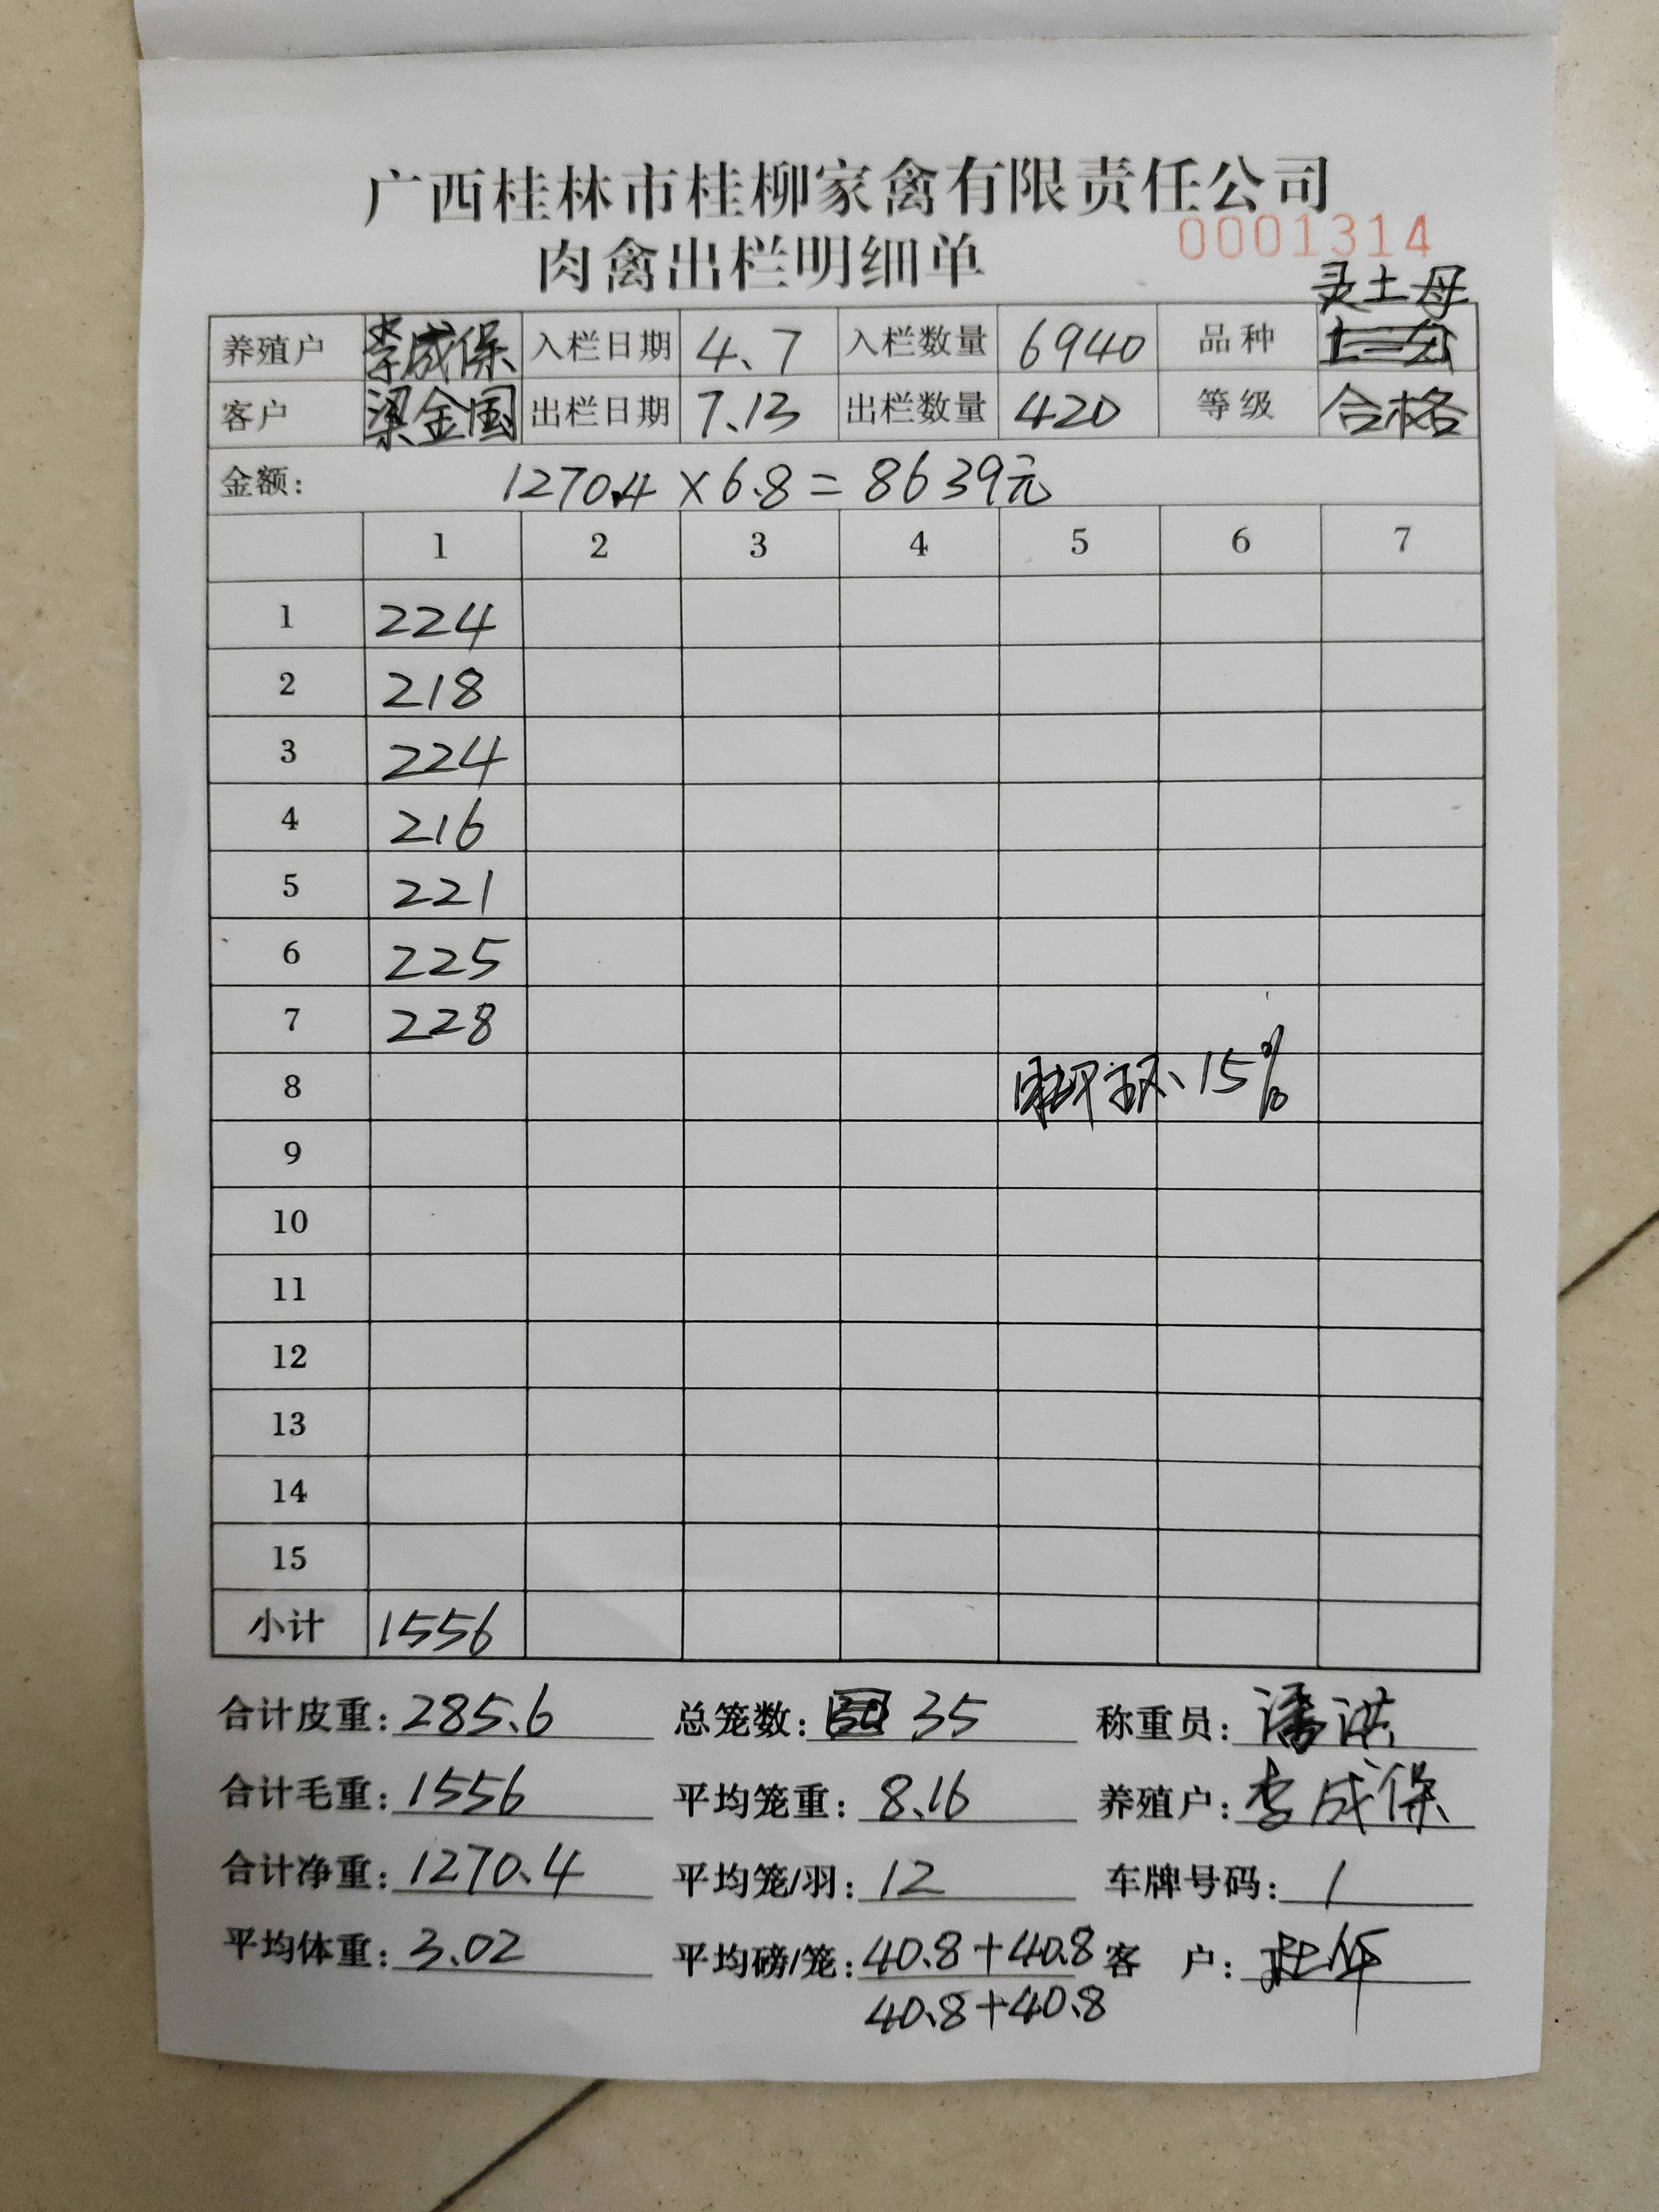 广西桂林市桂柳家禽有限责任公司
0001314
肉禽出栏明细单
灵土母
养殖户 李成保 入栏日期 4、7 入栏数量 6940 品种
客户 梁金国 出栏日期 7、13 出栏数量 420 等级 合格
金额: 1270.4 × 6.8 = 8639元
1 2 3 4 5 6 7
1 224
2 218
3 224
4 216
5 221
6 225
7 228
8 15%
9
10
11
12
13
14
15
小计 1556
合计皮重: 285.6 总笼数: 35 称重员: 潘洪
合计毛重: 1556 平均笼重: 8.16 养殖户: 李成保
合计净重: 1270.4 平均笼/羽: 12 车牌号码: 1
平均体重: 3.02 平均磅/笼: 40.8+40.8 客 户:
40.8+40.8